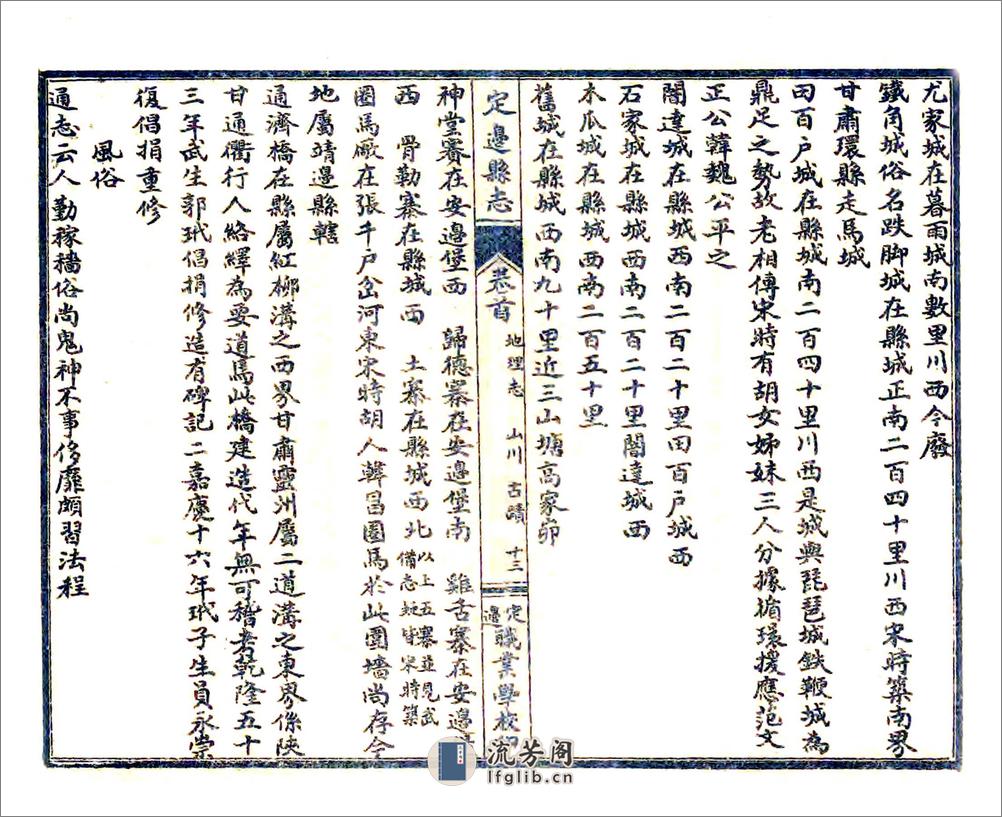 尤家城在暮雨城南數里川西今廢
鐵角城俗名跌脚城在縣城正南二百四十里川西宋時築南界
甘肅環縣走馬城
田百户城在縣城南二百四十里川西是城與琵琶城鉄鞭城為
鼎足之勢故老相傳宋時有胡女姊妹三人分據循環援應范文
正公韓魏公平之
閣達城在縣城西南二百二十里田百户城西
石家城在縣城西南二百二十里閣達城西
木瓜城在縣城西南二百五十里
舊城在縣城西南九十里近三山塘高家峁
定邊縣志
卷首
地理志 山川 古蹟 十三
定邊職業學校印
神堂寨在安邊堡西 歸德寨在安邊堡南 雞舌寨在安邊
西 骨勒寨在縣城西 土寨在縣城西北 以上五寨並見武備志疑皆宋時築
圈馬廠在張千户岔河東宋時胡人韓昌圈馬於此圍墻尚存今
地屬靖邊縣轄
通濟橋在縣屬紅柳溝之西界甘肅靈州屬二道溝之東界係陝
甘通衢行人絡繹為要道馬此橋建造代年無可稽考乾隆五十
三年武生郭玳倡捐修造有碑記二嘉慶十六年玳子生員永崇
復倡捐重修
風俗
通志云人勤稼穡俗尚鬼神不事侈靡頗習法程
流芳阁
lfglib.cn